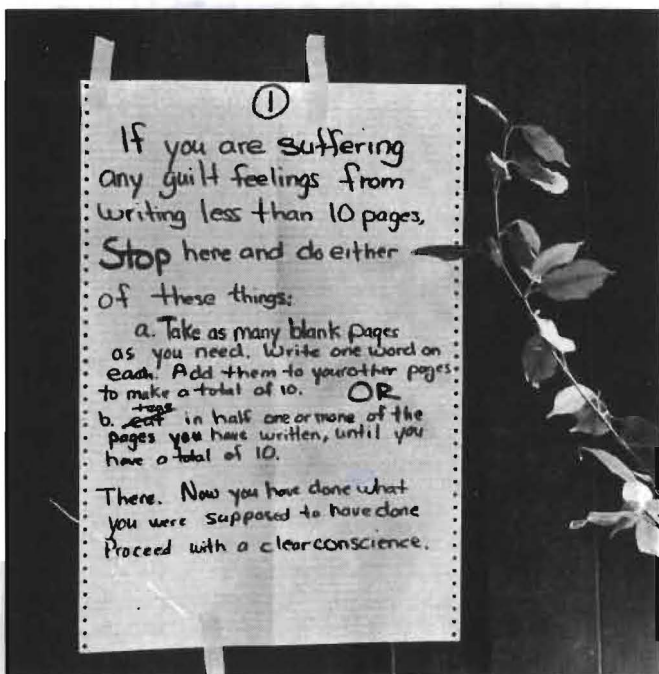 1
If you are suffering
any guilt feelings from
writing less than 10 pages,
Stop here and do either
of these things:
a. Take as many blank pages
as you need. Write one word on
each. Add them to your other pages
to make a total of 10. OR
tear
b. cut in half one or more of the
pages you have written, until you
have a total of 10.
There. Now you have done what
you were supposed to have done
Proceed with a clear conscience.